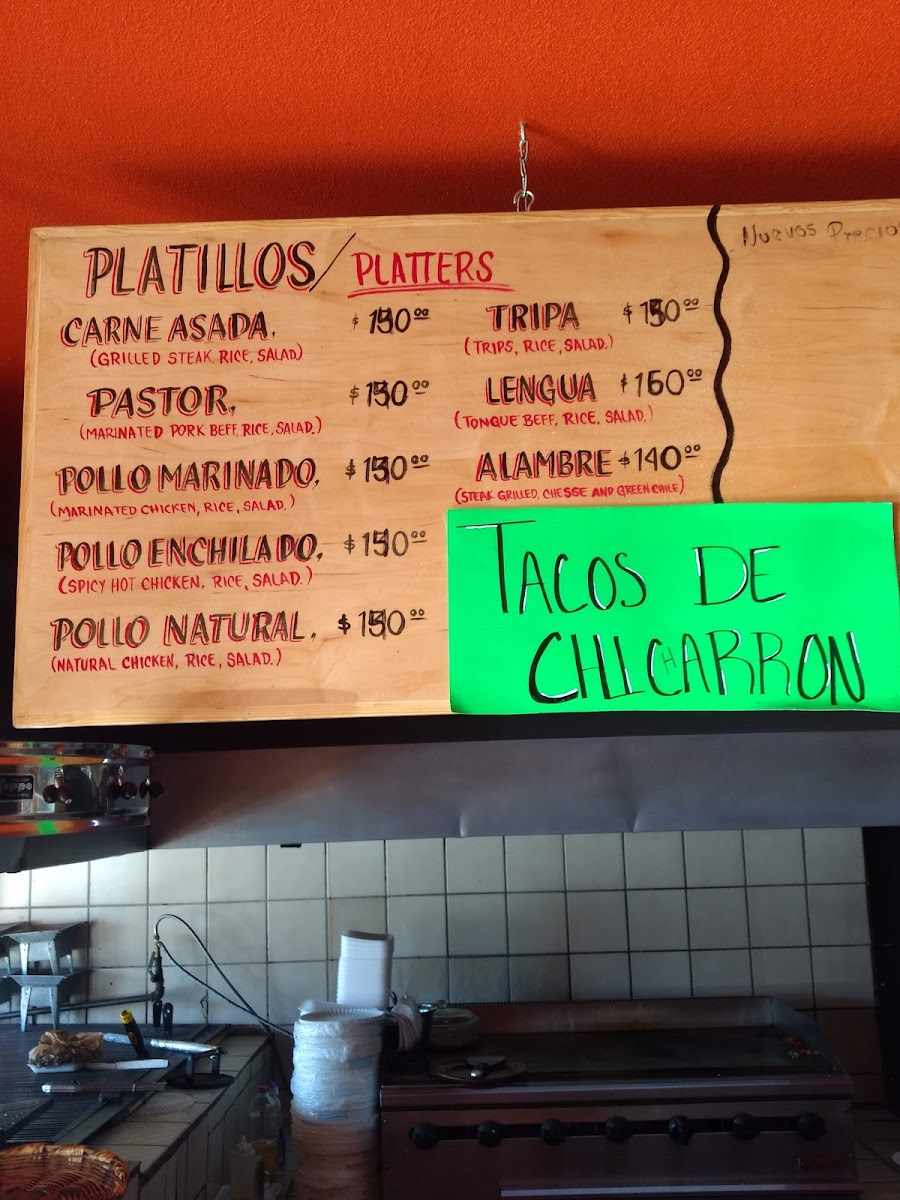 PLATILLOS/PLATTERS
CARNE ASADA. $150⁰⁰
(GRILLED STEAK, RICE, SALAD)
PASTOR. $150⁰⁰
(MARINATED PORK BEFF, RICE, SALAD.)
POLLO MARINADO. $150⁰⁰
(MARINATED CHICKEN, RICE, SALAD.)
POLLO ENCHILADO. $150⁰⁰
(SPICY HOT CHICKEN, RICE, SALAD.)
POLLO NATURAL. $150⁰⁰
(NATURAL CHICKEN, RICE, SALAD.)
TRIPA $150⁰⁰
(TRIPS, RICE, SALAD.)
LENGUA $160⁰⁰
(TONGUE BEFF, RICE, SALAD.)
ALAMBRE $140⁰⁰
(STEAK GRILLED, CHESSE AND GREEN CHILE)
Nuevos Precio
TACOS DE
CHICHARRON